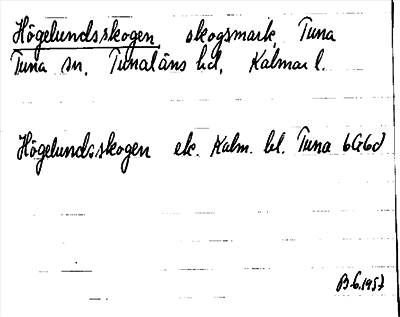 Högelundsskogen, skogsmark, Tuna
Tuna sn, Tunaläns hd, Kalmar l.
Högelundsskogen ek. Kalm. bl. Tuna 6G6d
B.E. 1957